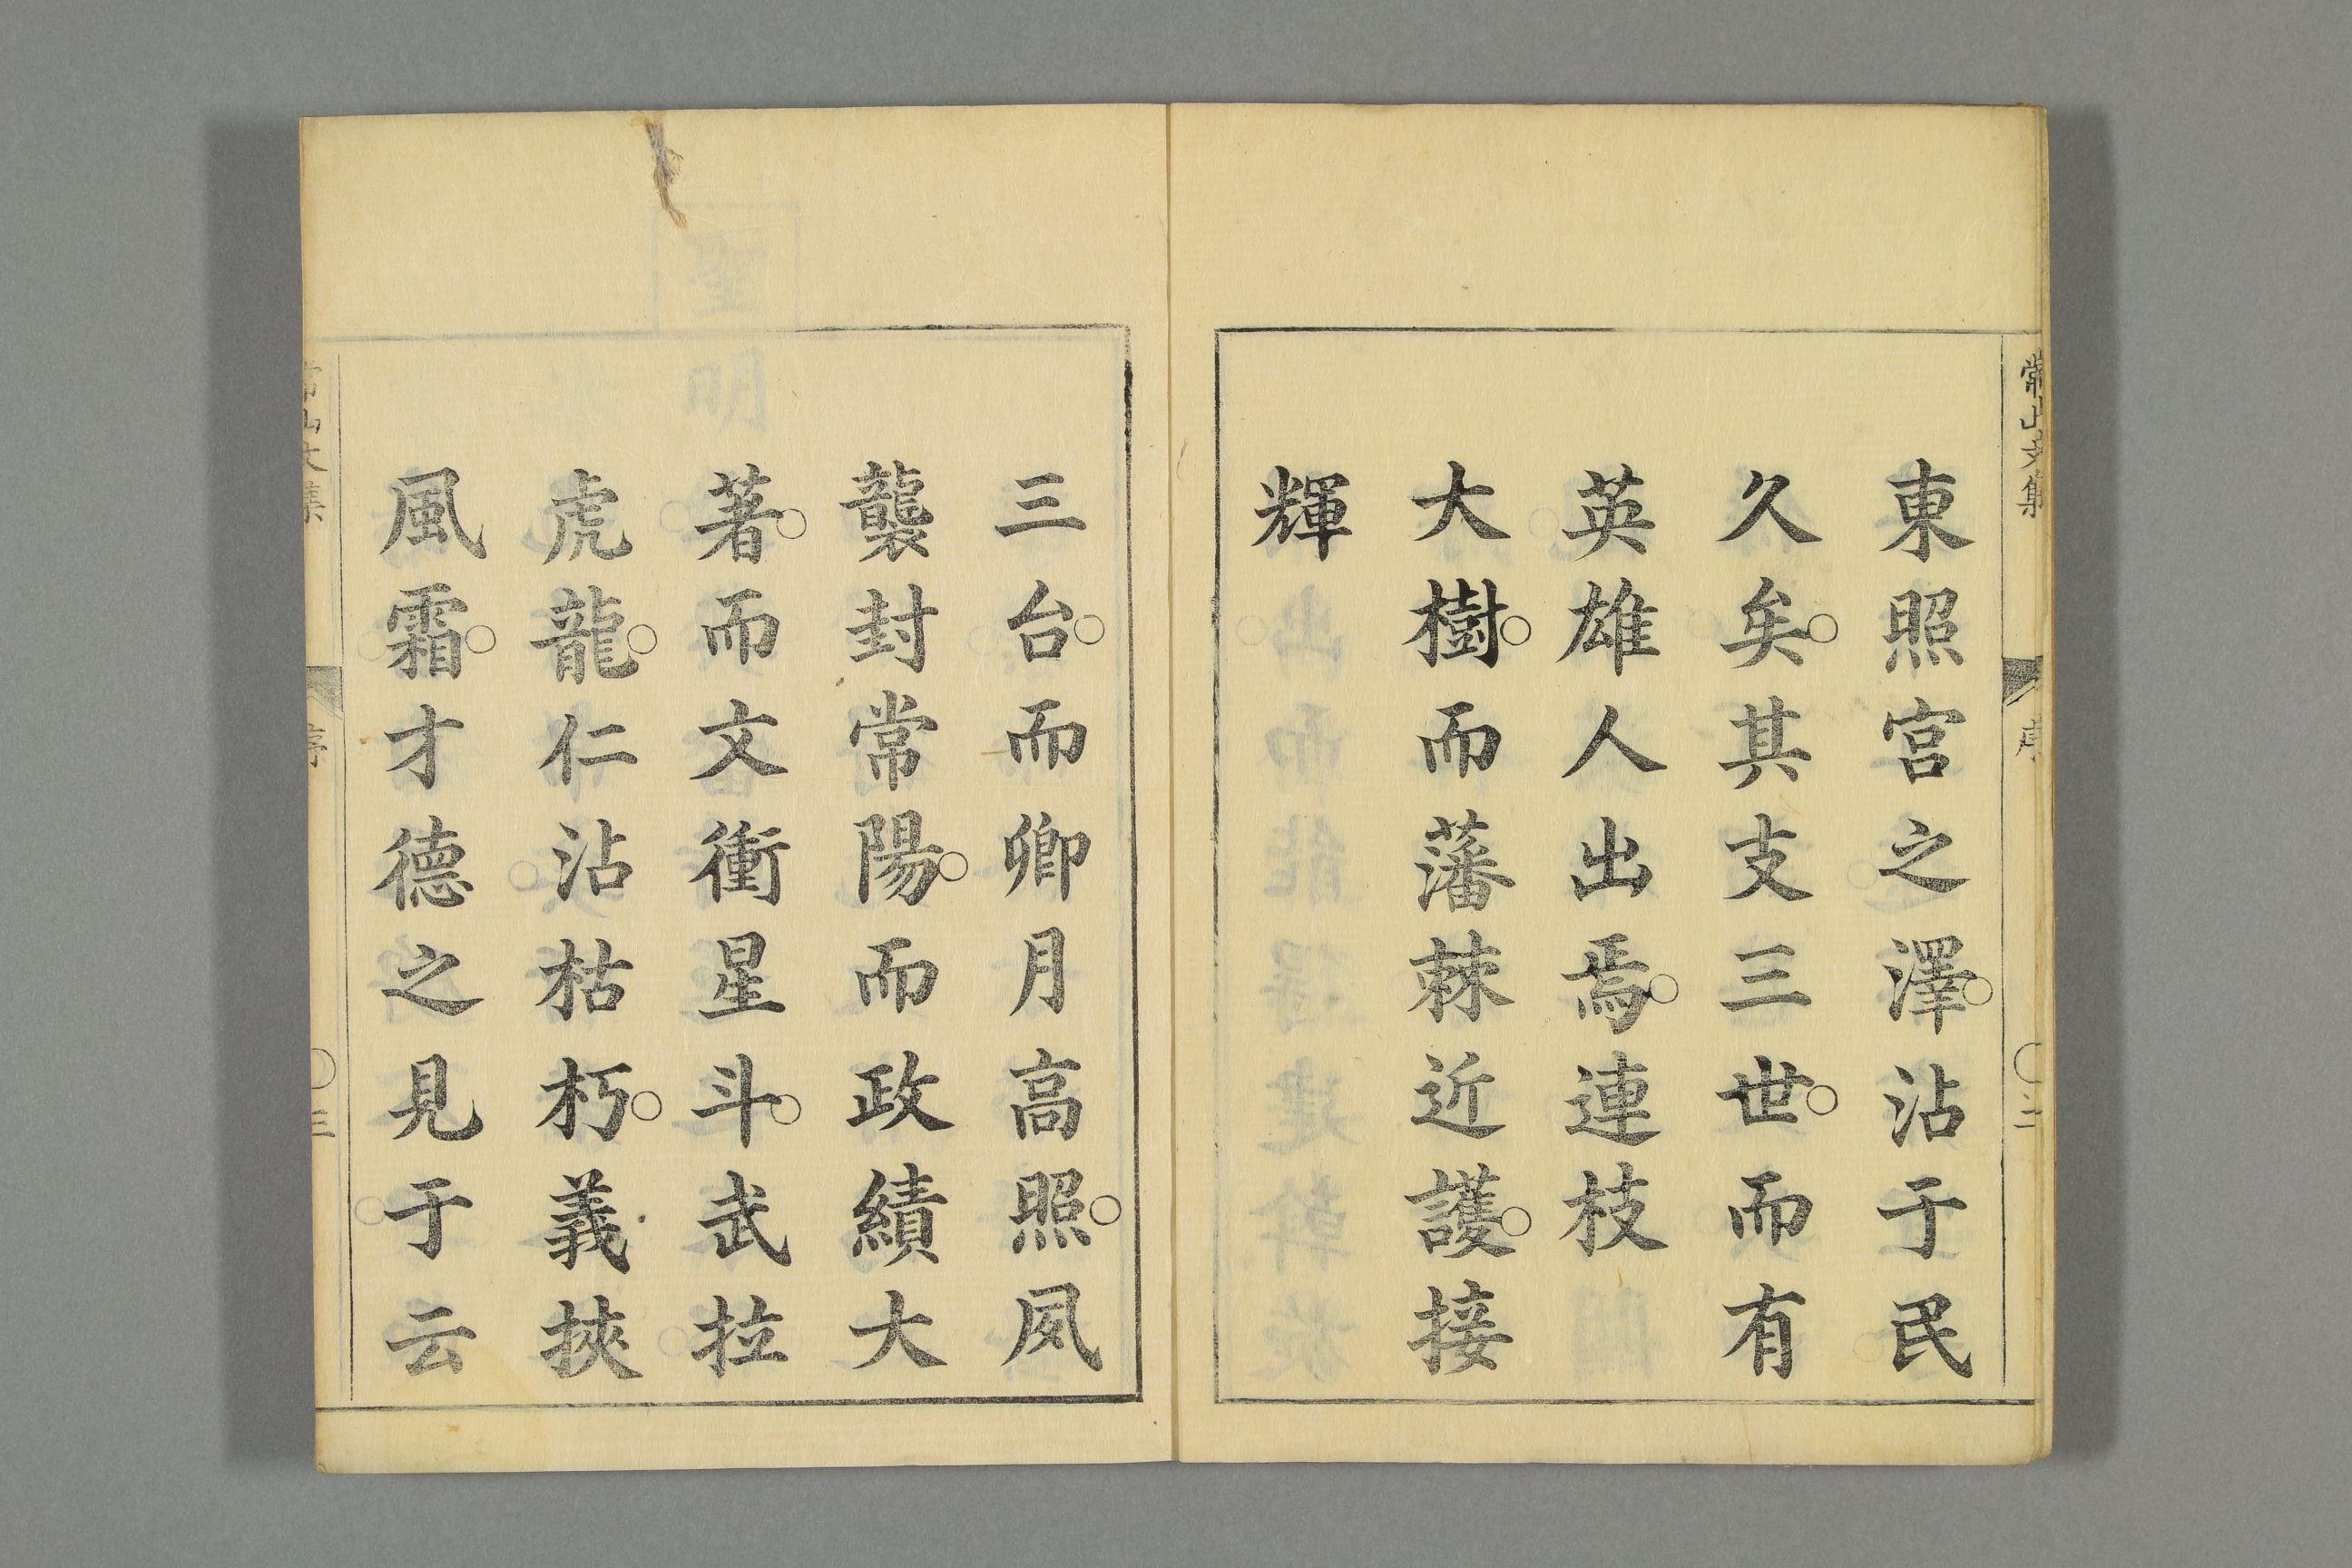 常山文集
序
二
東照宮之澤沾于民
久矣其支三世而有
英雄人出焉連枝
大樹而藩棘近護接
輝
三台而卿月高照夙
襲封常陽而政績大
著而文衝星斗武拉
虎龍仁沾枯朽義挾
風霜才德之見于云
常山文集
序
三